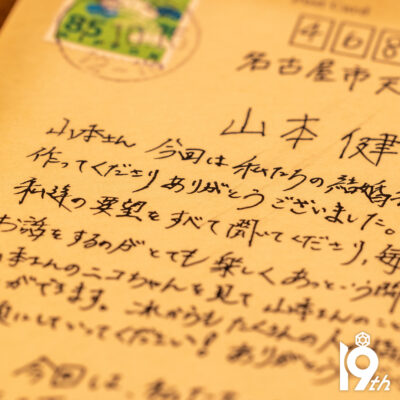 Post Card
85
10
468
名古屋市天
山本 健
山本さん 今回は 私たちの結婚
作ってくださり ありがとうございました。
私達の要望をすべて聞いてくださり、毎
お話をするのがとても楽しくあっという間
本さんのニコちゃんを見て 山本さんの
ができます。これからもたくさんの人
にしていってください! ありがとう
今回は、私た
19th